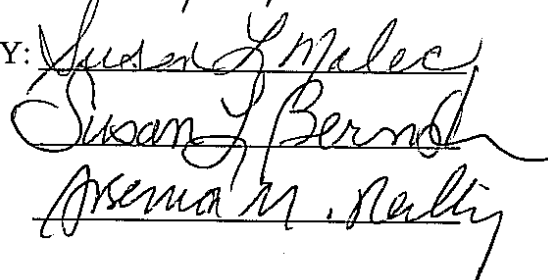 Y: Susan L Malec
Susan L Bernd
Arsenia M. Realtiy